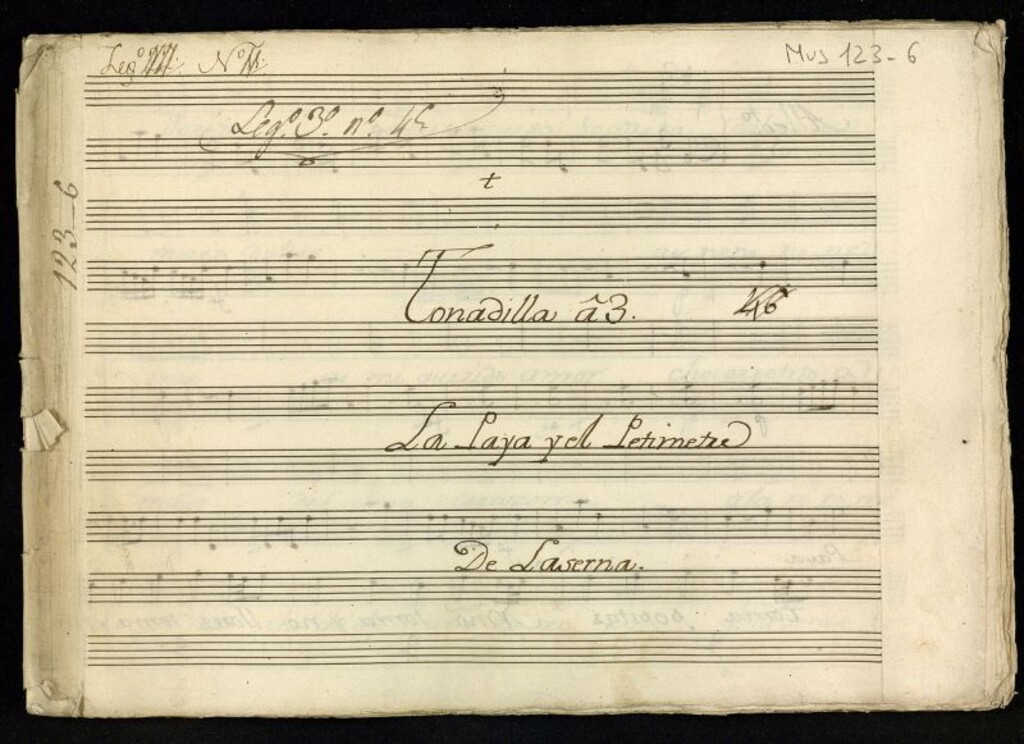 Leg.º Nº
Mus 123-6
Leg.º 3.º n.º 4
t
123-6
Tonadilla â 3.
46
La Paya y el Petimetre
De Laserna.